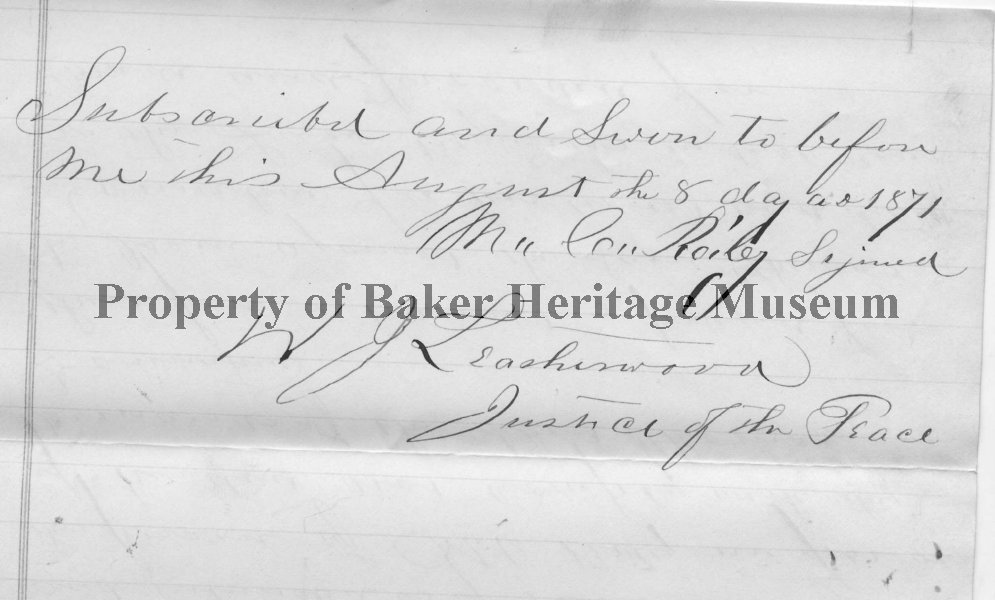 Subscribd and Sworn to before
Me This August the 8 day ad 1871
Signed
Property of Baker Heritage Museum
W J Leatherwood
Justice of the Peace